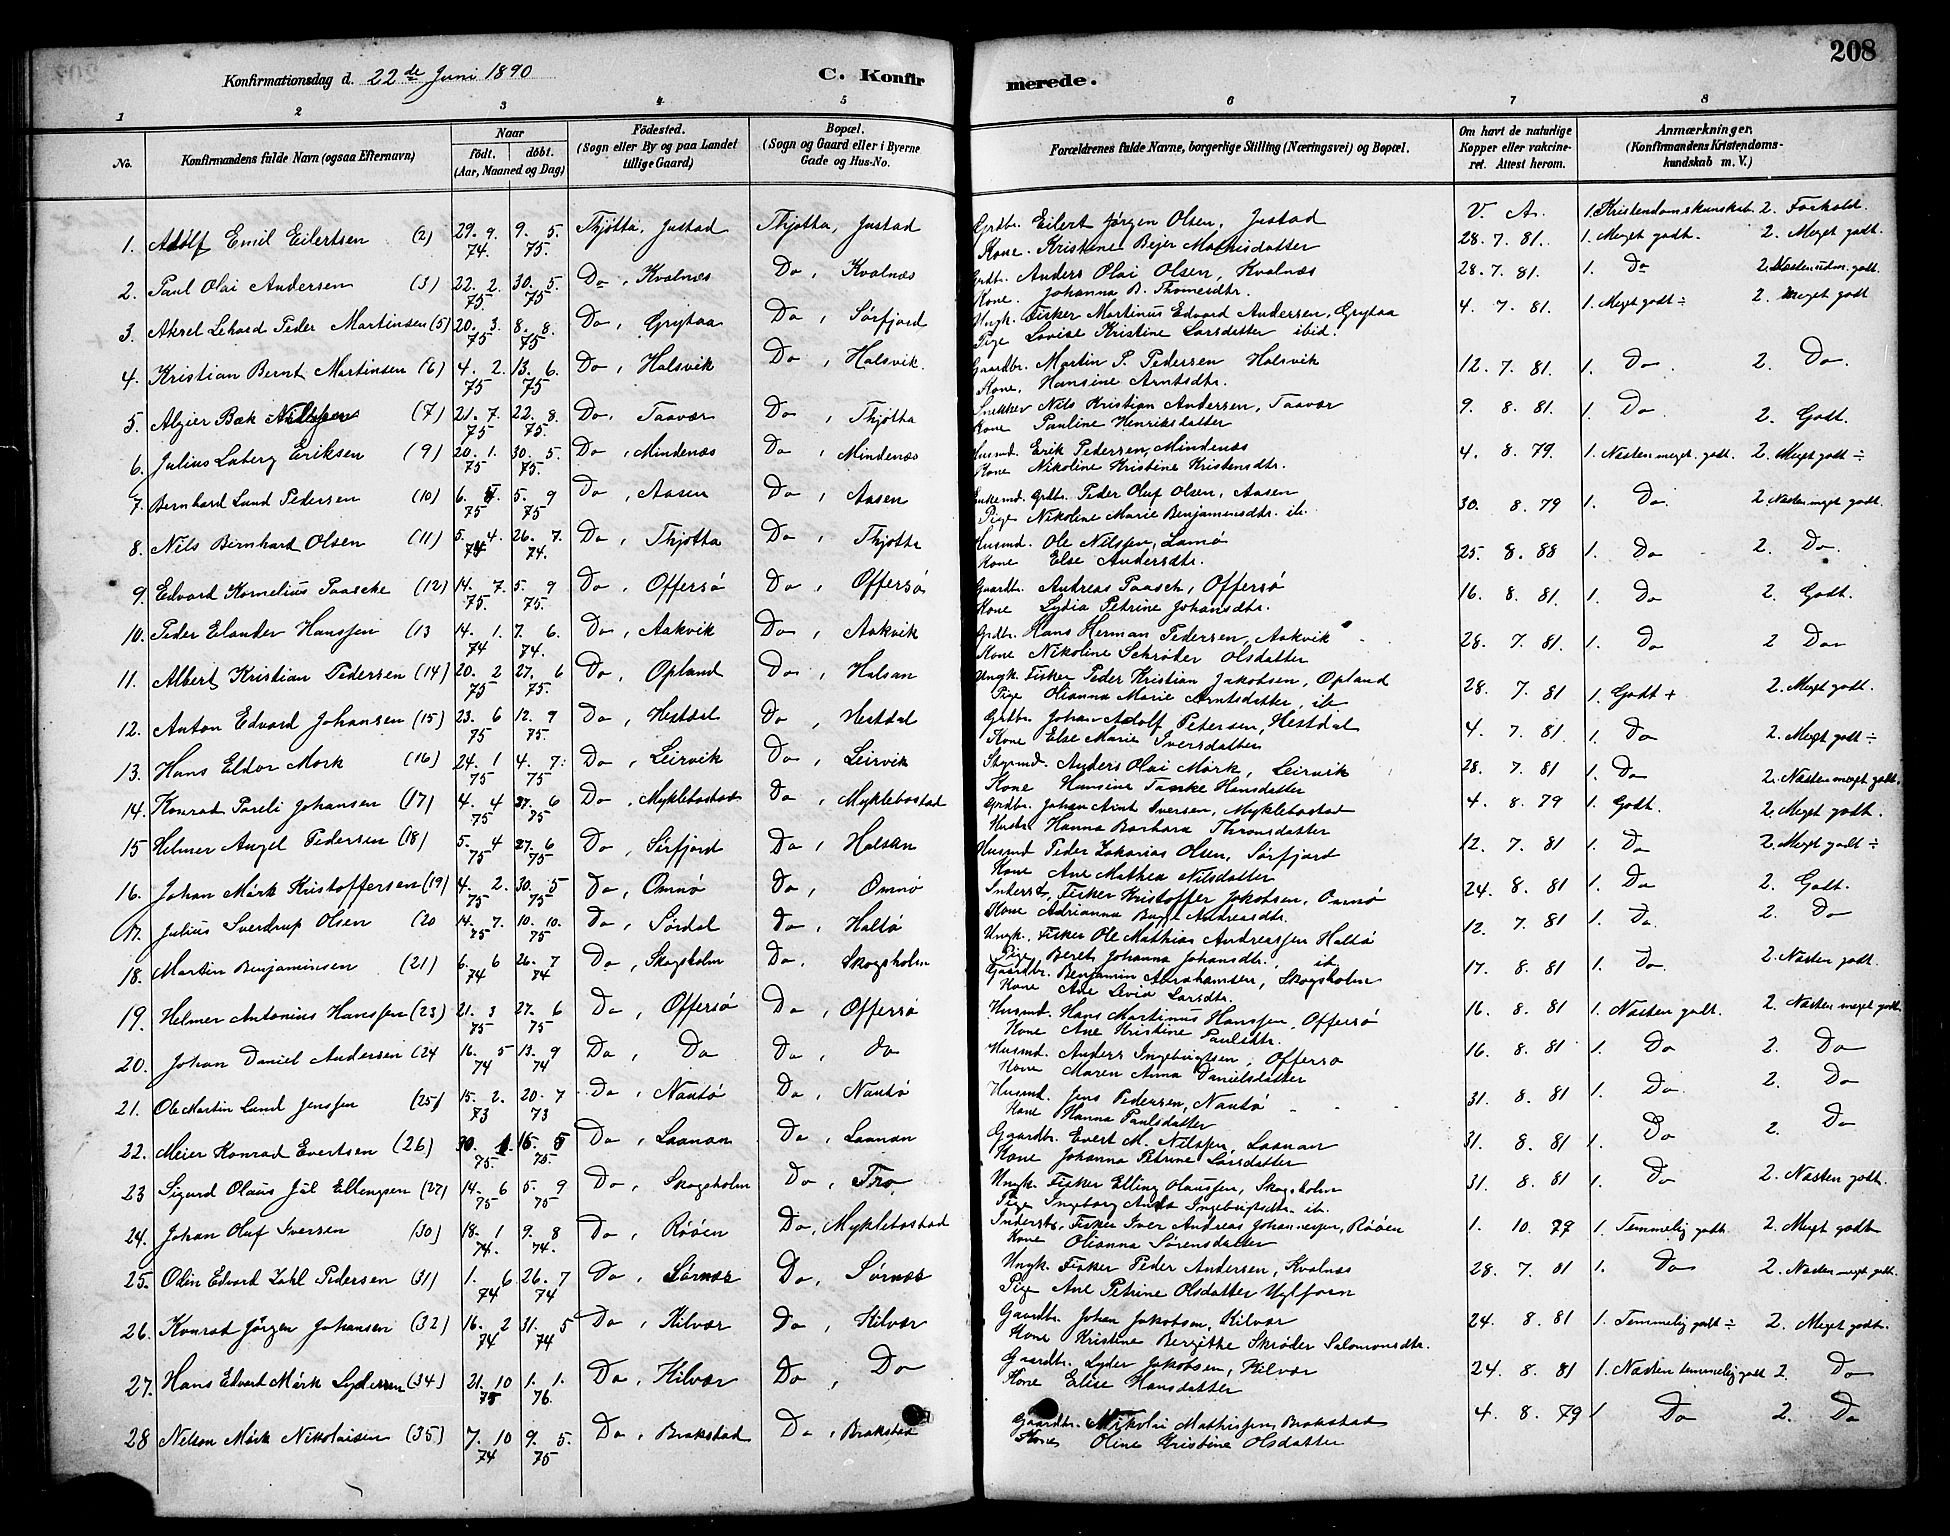 208
Konfirmationsdag d. 22de Juni 1890 C. Konfirmerede.
1 2 3 4 5 6 7 8
No. Konfirmandens fulde Navn (ogsaa Efternavn) Naar født. døbt. (Aar, Maaned og Dag) Fødested. (Sogn eller By og paa Landet tillige Gaard) Bopæl. (Sogn og Gaard eller i Byerne Gade og Hus-No. Forældrenes fulde Navne, borgerlige Stilling (Næringsvei) og Bopæl. Om havt de naturlige Kopper eller vakcineret. Attest herom. Anmærkninger. (Konfirmandens Kristendomskundskab m. V.)
V. A. 1. Kristendomskunskab 2. Forhold.
1. Adolf Emil Eilertsen (2) 29. 9. 74. 9. 5. 75. Thjøtta, Justad Thjøtta, Justad Grdbr. Eilert Jørgen Olsen, Justad 28. 7. 81. 1. Meget godt. 2. Meget godt.
Kone Kristine Bejer Mathisdatter
2. Paul Olai Andersen (3) 22. 2. 75 30. 5. 75 Do, Kvalnæs Do, Kvalnæs Grdbr. Anders Olai Olsen, Kvalnæs 28. 7. 81. 1. Do 2. Næsten udm. godt.
Kone. Johanna B. Thomesdtr.
3. Aksel Lehard Peder Martinsen (5) 20. 3. 75 8. 8. 75. Do, Grytaa Do, Sørfjord Ungk. Fisker Martinus Edvard Andersen, Grytaa 4. 7. 81. 1. Meget godt ÷ 2. Meget godt
Pige Lovise Kristine Larsdatter ibid.
4. Kristian Bernt Martinsen (6) 4. 2. 75 13. 6. 75 Do, Halsvik Do, Halsvik. Gaardbr. Martin P. Pedersen Halsvik 12. 7. 81. 1. Do. 2. Do.
Kone, Hansine Arntsdtr.
5. Algier Bæk Nilssen (7) 21. 7. 75 22. 8. 75. Do, Taavær Do, Thjøtta Snekker Nils Kristian Andersen, Taavær 9. 8. 81. 1. Do. 2. Godt.
Kone Pauline Henriksdatter
6. Julius Laberg Eriksen (9) 20. 1. 75 30. 5. 75. Do, Mindenæs Do, Mindenæs Husmd. Erik Pedersen, Mindenæs 4. 8. 79. 1. Næsten meget godt. 2. Meget godt ÷
Kone Nikoline Kristine Kristensdtr.
7. Bernhard Lund Pedersen (10) 6. 75 5. 9 75 Do, Aasen Do, Aasen Enkemd. Grdbr. Peder Oluf Olsen, Aasen 30. 8. 79 1. Do 2. Næsten meget godt.
Pige Nikoline Marie Benjaminsdtr. ib.
8. Nils Bernhart Olsen (11) 5. 4. 74 26. 7. 74. Do, Thjøtta Do, Thjøtta Husmd. Ole Nilssen, Lamø 25. 8. 88 1. Do 2. Do.
Kone Else Andersdtr.
9. Edvard Kornelius Paasche (12) 14. 7. 75. 5. 9 75. Do, Offersø Do, Offersø Gaardbr. Andreas Paasch, Offersø 16. 8. 81. 1. Do 2. Godt.
Kone Lydia Petrine Johansdtr.
10. Peder Elander Hanssen (13 14. 1. 74 7. 6. 74. Do, Aakvik Do, Aakvik Grdbr. Hans Herman Pedersen, Aakvik 28. 7. 81. 1. Do 2 Do
Kone Nikoline Schrøder Olsdatter
11. Albert Kristian Pedersen (14) 20. 2 75 27. 6 75. Do, Opland Do, Halsan Ungk. Fisker Peder Kristian Jakobsen, Opland 28. 7. 81 1. Godt + 2. Meget godt.
Pige Olianna Marie Arntsdatter, ib
12. Anton Edvard Johansen (15) 23. 6 75 12. 9 75. Do, Hestdal Do, Hestdal Grdbr. Johan Adolf Petersen, Hestdal 4. 7. 81. 1. Do 2. Meget godt ÷
Kone Else Marie Iversdatter
13. Hans Eldor Mørk (16) 24. 1 75 4. 7. 75 Do, Leirvik Do, Leirvik Styrmd. Anders Olai Mørk, Leirvik 28. 7. 81 1. Do 2. Næsten meget godt.
Kone Hansine Hansdatter
14. Konrad Pareli Johansen (17) 4. 4 75 27. 6 75 Do, Myklebostad Do, Myklebostad Grdbr. Johan Arnt Iversen, Myklebostad 4. 8. 79 1. Godt. 2. Meget godt.
Hustr. Hanna Barbara Thronsdatter
15 Helmer Angel Pedersen (18) 5. 4 75 27. 6 75 Do, Sørfjord Do, Halsan Husmd Peder Zakarias Olsen, Sørfjord 12. 7. 81 1. Do 2. Meget godt ÷
Kone Ane Mathea Nilsdatter
16. Johan Mørk Kristoffersen (19) 4. 2. 75 30. 5 75 Do, Omnø Do, Omnø Inderst, Fisker Kristoffer Jakobsen, Omnø 24. 8. 81 1. Do 2. Godt.
Kone Adrianna Andreasdtr.
17. Julius Sverdrup Olsen (20 14. 7. 75 10. 10. 75 Do, Sørdal Do, Haltø Ungk. Fisker Ole Mathias Andreassen Haltø 12. 7. 81 1. Do. 2. Do
Pige Beret Johanna Johansdtr. ib.
18. Martin Benjaminsen (21) 6. 6 74 26. 7 74 Do, Skogsholm Do, Skogsholm Gaardbr. Benjamin Abrahamsen, Skogsholm 17. 8. 81 1. Do. 2. Næsten godt.
Kone Ane Livia Larsdtr.
19. Helmer Antonius Hanssen (23) 21. 3 75 27. 6 75 Do, Offersø Do, Offersø Husmd. Hans Martinus Hanssen, Offersø 16. 8. 81 1. Næsten godt. 2. Næsten meget godt.
Kone Ane Kristine Paulsdtr.
20. Johan Daniel Andersen (24 16. 5 74 13. 9 74 Do, Do Do, do Husmd. Anders Ingebrigtsen, Offersø 16. 8. 81 1. Do 2. Do
Kone Maren Anna Danielsdatter
21. Ole Martin Lund Jenssen (25) 15. 2. 73 20. 7 73 Do, Nautø Do, Nautø Husmd. Jens Pedersen, Nautø 31. 8. 81 1. Do 2. Do
Kone Hanna Paulsdatter
22. Meier Konrad Evertsen (26) 30. 1. 75. 16. 5 75. Do, Laanan Do, Laanan Gaardbr. Evert M. Nilssen, Laanan 31. 8. 81 1. Do 2. Do
Kone Johanna Petrine Larsdatter
23 Sigurd Olaus Jul Ellengsen (27) 14. 6 75 5. 9 75 Do, Skogsholm Do, Tro Ungk. Fisker Elling Olaussen, Skogsholm 31. 8. 81 1. Do 2. Næsten godt.
Pige Ingeborg Anna Ingebrigtsdtr. ib.
24. Johan Oluf Iversen (30) 18. 1 74. 9. 8 74. Do, Røøen Do, Myklebostad Inderst, Fisker Iver Andreas Johannessen, Røøen 1. 10. 79 1. Temmelig godt. 2. Meget godt
Kone Olianna Sørensdatter
25. Odin Edvard Zahl Pedersen (31) 1. 6 74 26. 7 74 Do, Sørnæs Do, Sørnæs Ungk. Fisker Peder Andersen, Kvalnæs 28. 7. 81 1. Do 2. Næsten meget godt.
Pige Ane Petrine Olsdatter
26. Konrad Jørgen Johansen (32) 16. 2 74 31. 5 74 Do, Kilvær Do, Kilvær Gaardbr. Johan Jakobsen, Kilvær 24. 8. 81 1. Temmelig godt ÷ 2. Meget godt.
Kone Kristine Bergithe Skrøder Salomonsdtr.
27. Hans Edvart Mørk Lydersen (34) 21. 10 75 1. 1. 76. Do, Kilvær Do, Do Gaardbr. Lyder Jakobsen, Kilvær 24. 8. 81 1. Næsten temmelig godt 2. Do
Kone Elise Hansdatter
28 Nelson Mørk Nikolaisen (35) 7. 10 74 9. 5. 75 Do, Brakstad Do, Brakstad Gaardbr. Nikolai Mathissen, Brakstad 4. 8. 79 1 Do 2. Do
Kone Oline Kristine Olsdatter